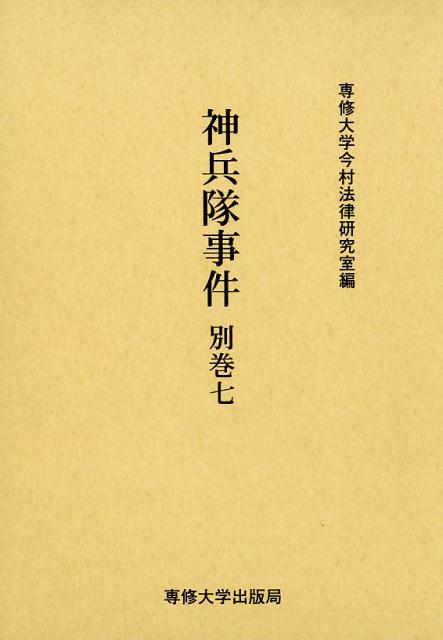 専修大学今村法律研究室編
神兵隊事件 別巻七
専修大学出版局